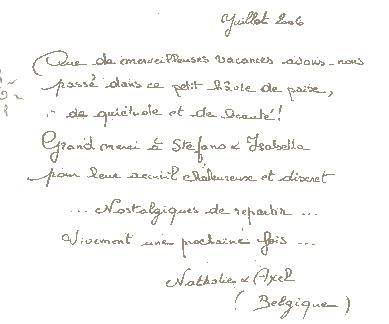 Juillet 2006
Que de merveilleuses vacances avons-nous
passé dans ce petit hâvre de paix,
de quiétude et de beauté!
Grand merci à Stefano & Isabella
pour leur accueil chaleureux et discret
... Nostalgiques de repartir ...
Vivement une prochaine fois ...
Nathalie & Axel
(Belgique)